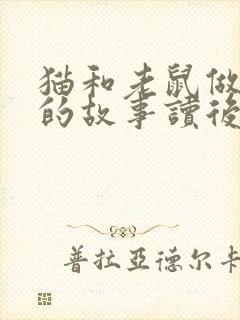 猫和老鼠做
的故事讀後
普拉亞德尔卡